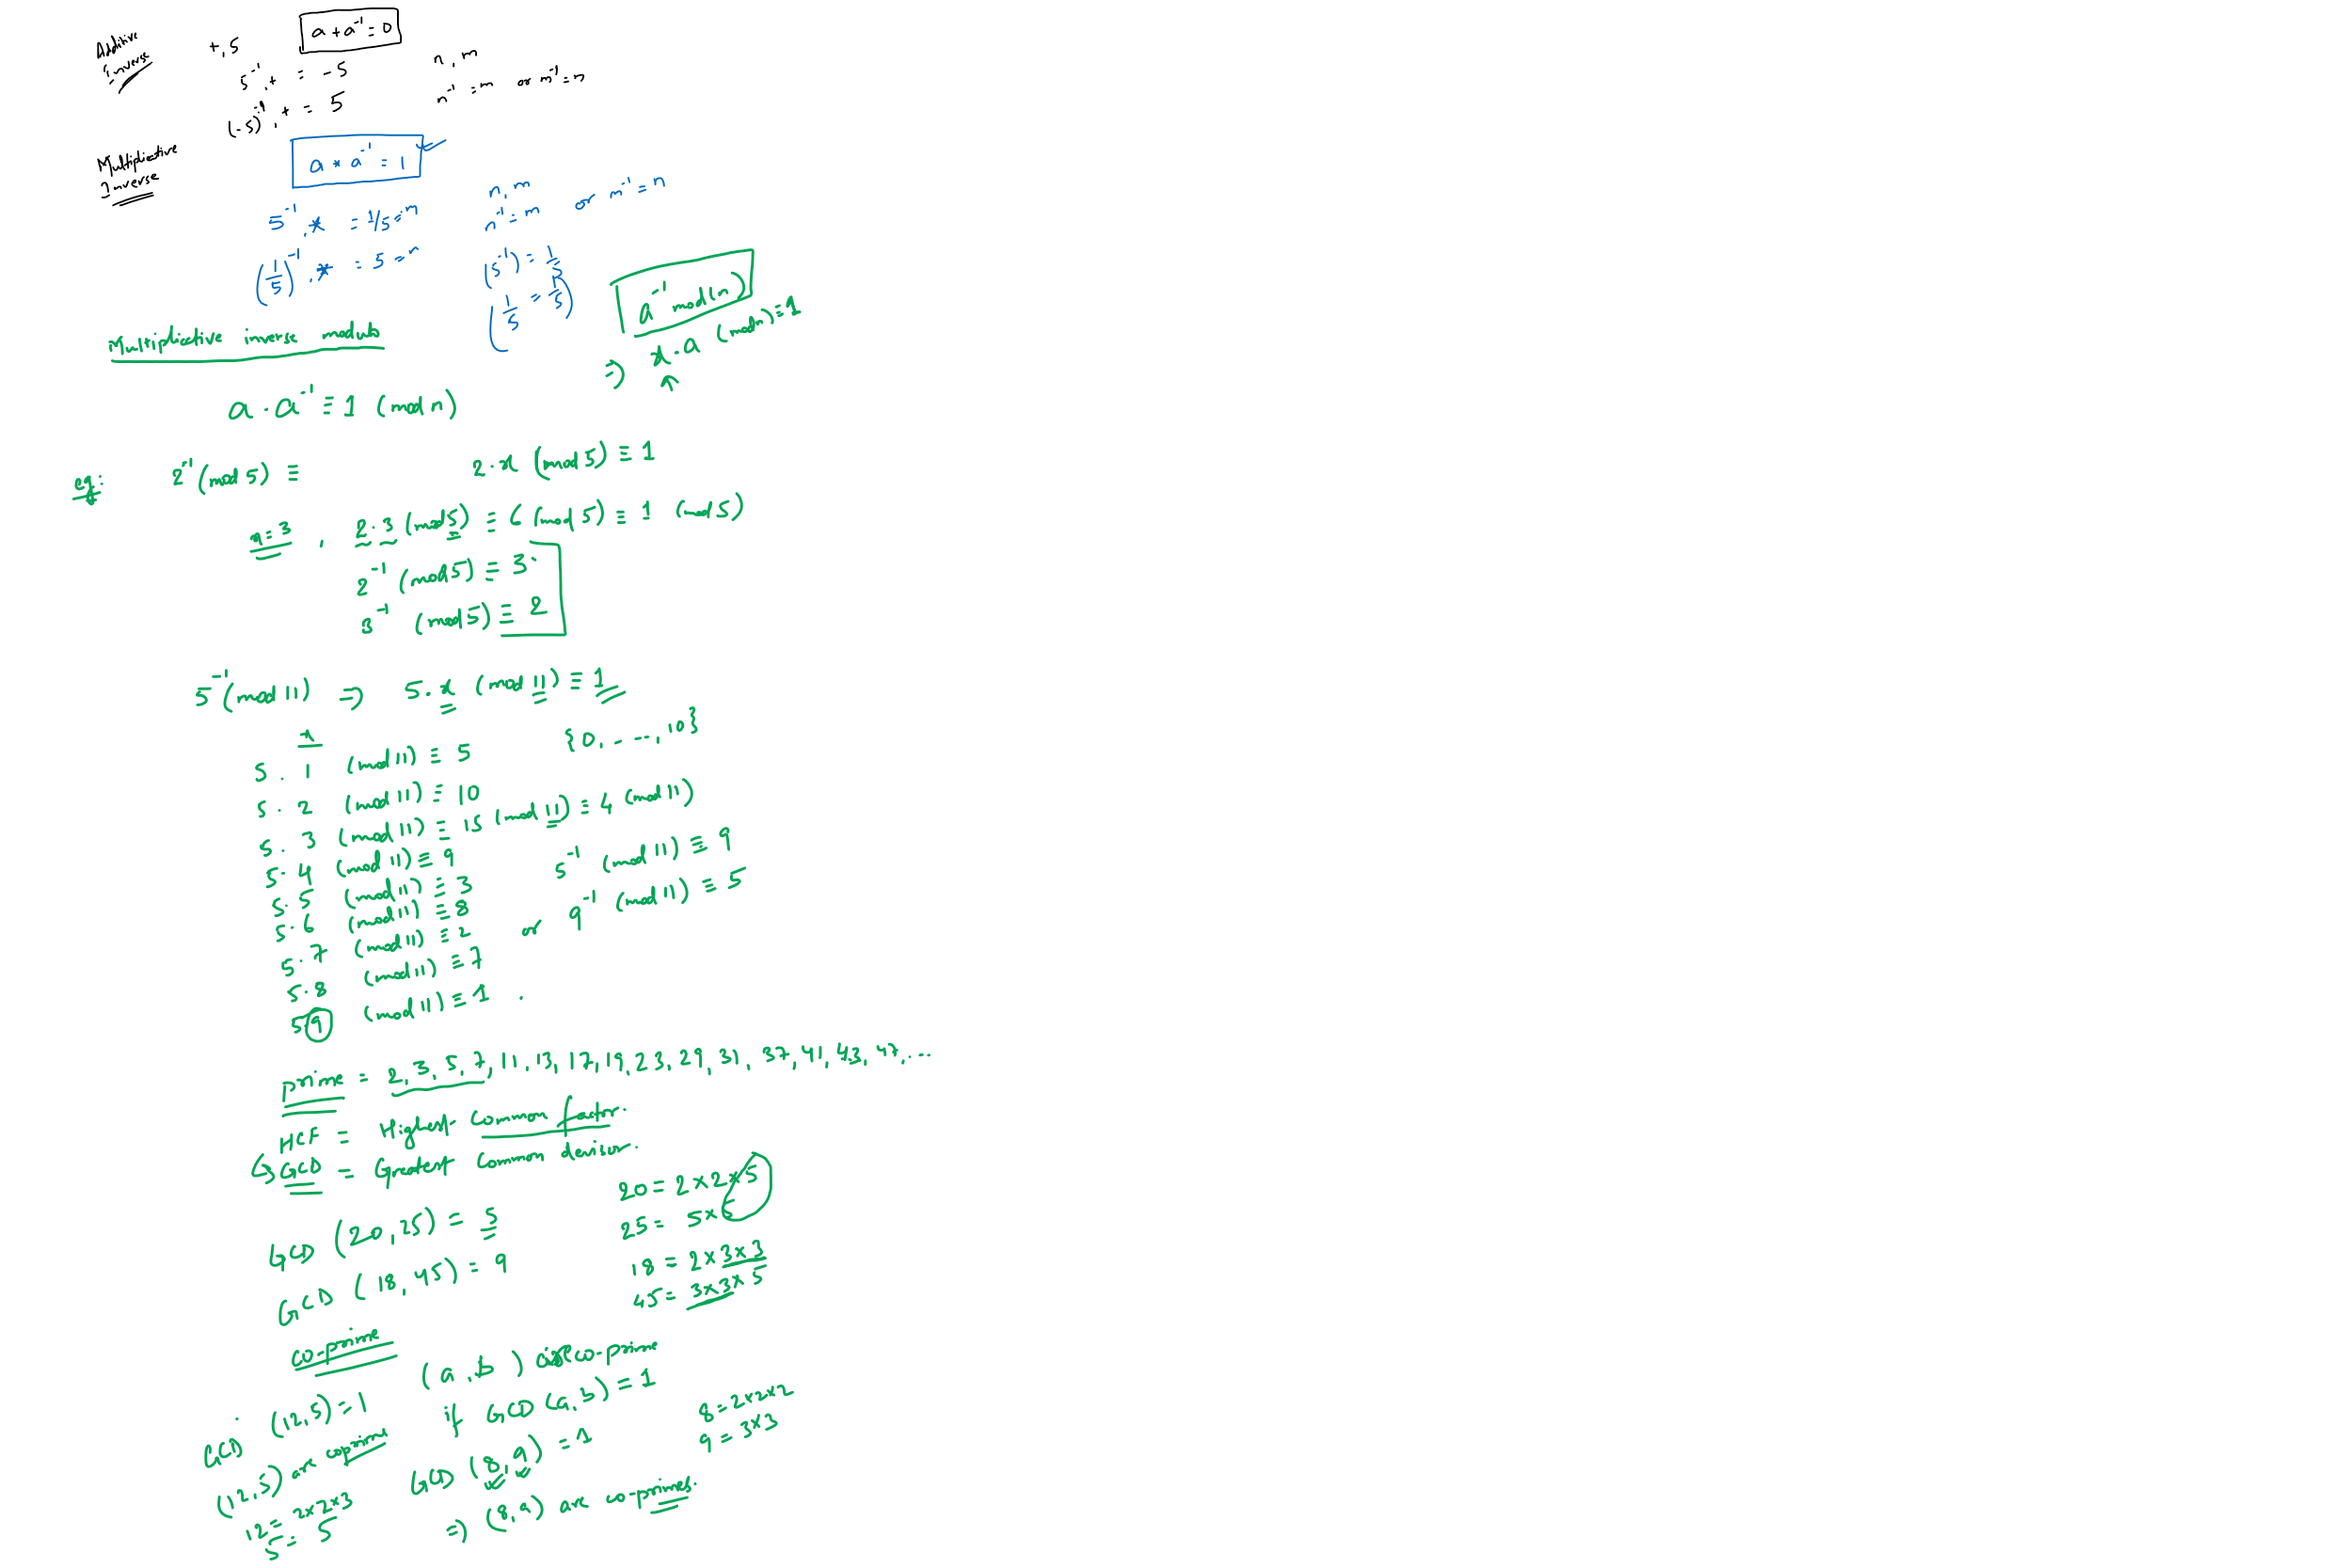 Additive
Inverse
+, 5
a + a⁻¹ = 0
5⁻¹, + = -5
(-5)⁻¹, + = 5
n, m
n⁻¹ = m or m⁻¹ = n
Multiplicative
Inverse
a * a⁻¹ = 1
5⁻¹, * = 1/5 = m
(1/5)⁻¹, * = 5 = n
n, m
n⁻¹ = m or m⁻¹ = n
(5⁻¹) = 1/5
a⁻¹ mod(n)
⇒ x · a (mod n) ≡ 1
Multiplicative inverse modulo
a · a⁻¹ ≡ 1 (mod n)
eg: 2⁻¹ (mod 5) ≡
2 · x (mod 5) ≡ 1
x = 3, 2 · 3 (mod 5) ≡ 6 (mod 5) ≡ 1 (mod 5)
2⁻¹ (mod 5) ≡ 3
3⁻¹ (mod 5) ≡ 2
5⁻¹ (mod 11) ⇒ 5 · x (mod 11) ≡ 1
x
{0, - - -, 10}
5 · 1 (mod 11) ≡ 5
5 · 2 (mod 11) ≡ 10
5 · 3 (mod 11) ≡ 15 (mod 11) ≡ 4 (mod 11)
5 · 4 (mod 11) ≡ 9
5 · 5 (mod 11) ≡ 3
5 · 6 (mod 11) ≡ 8
5 · 7 (mod 11) ≡ 2
5 · 8 (mod 11) ≡ 7
5 · 9 (mod 11) ≡ 1
5⁻¹ (mod 11) ≡ 9
or 9⁻¹ (mod 11) ≡ 5
prime = 2, 3, 5, 7, 11, 13, 17, 19, 23, 29, 31, 37, 41, 43, 47, ...
HCF = Highest common factor.
↳ GCD = Greatest common devisor.
GCD (20, 25) = 5
20 = 2×2×5
25 = 5×5
GCD (18, 45) = 9
18 = 2×3×3
45 = 3×3×5
co-prime
(a, b) are co-prime
if GCD (a, b) = 1
GCD (12, 5) = 1
(12, 5) are coprime
12 = 2×2×3
5 = 5
GCD (8, 9) = 1
8 = 2×2×2
9 = 3×3
⇒ (8, 9) are co-primes.